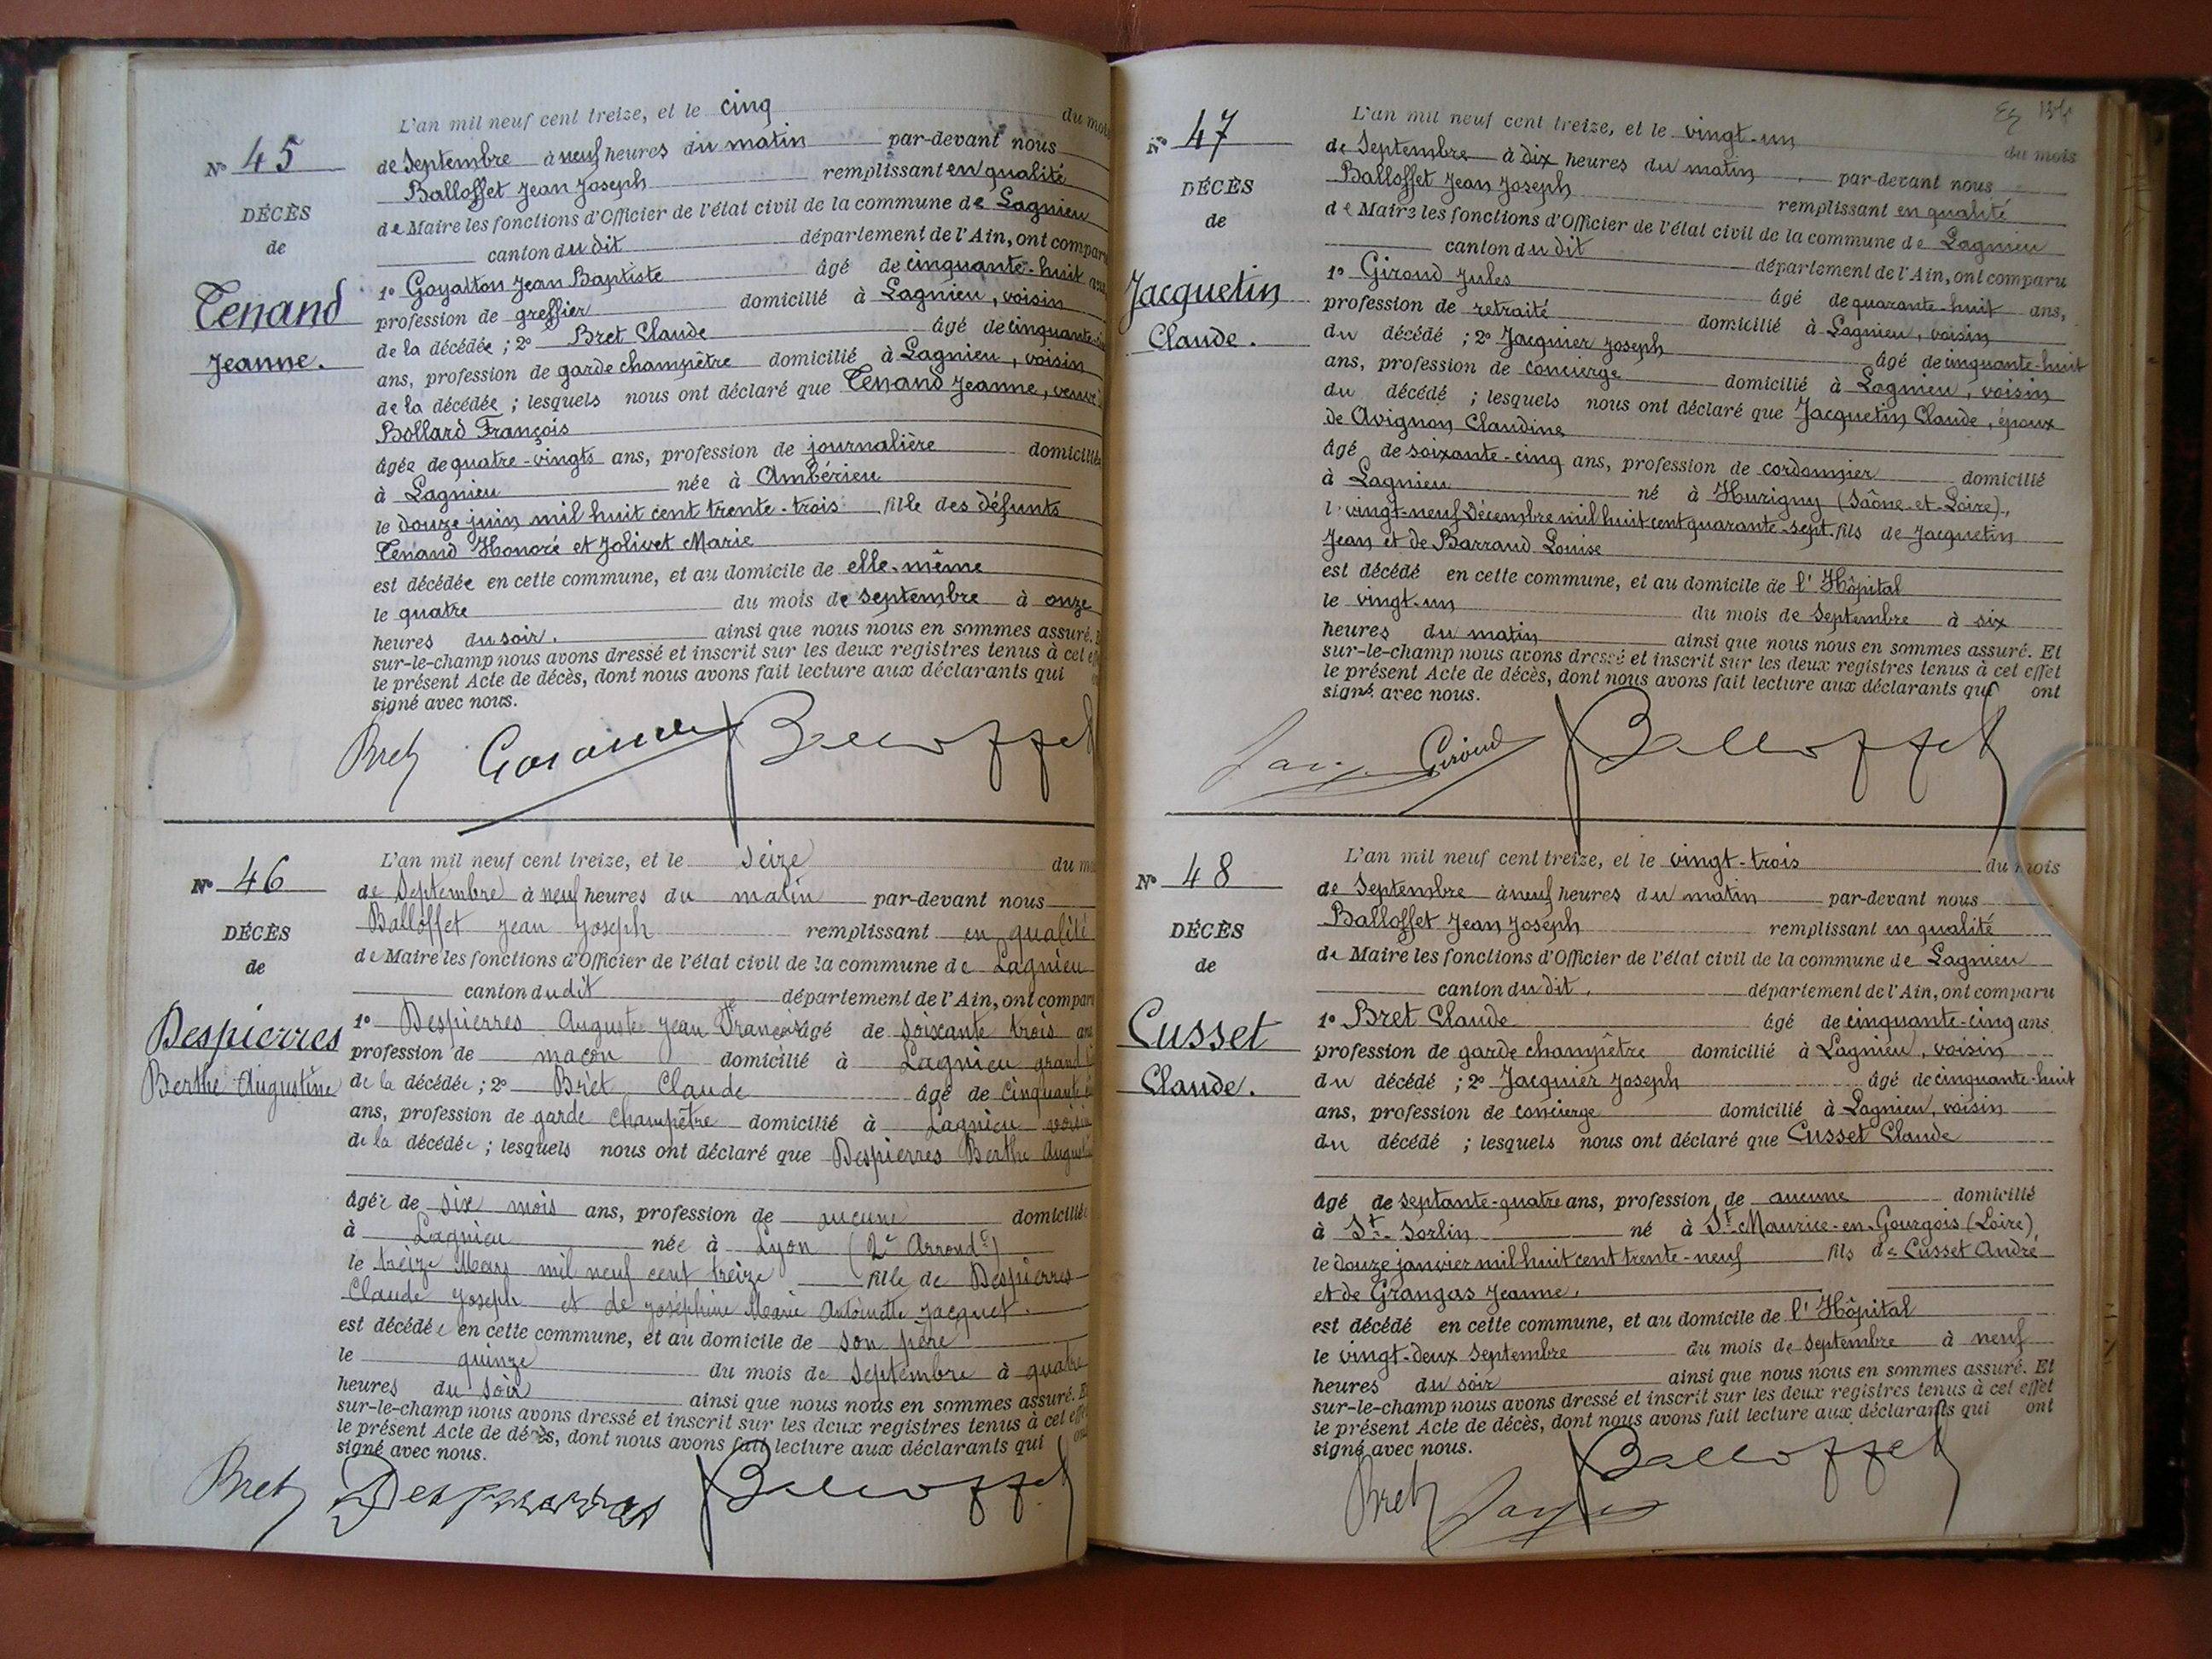 L'an mil neuf cent treize, et le cinq du mois
Nº 45
de Septembre à neuf heures du matin par-devant nous
Balloffet Jean Joseph remplissant en qualité
DÉCÈS
de Maire les fonctions d'Officier de l'état civil de la commune de Lagnieu
de
canton du dit département de l'Ain, ont comparu
1º Goyatton Jean Baptiste âgé de cinquante-huit ans
Tenand
profession de greffier domicilié à Lagnieu, voisin
de la décédée ; 2º Bret Claude âgé de cinquante-
Jeanne.
ans, profession de garde champêtre domicilié à Lagnieu, voisin
de la décédée ; lesquels nous ont déclaré que Tenand Jeanne, veuve
Bollard François
âgée de quatre-vingts ans, profession de journalière domiciliée
à Lagnieu née à Ambérieu
le douze juin mil huit cent trente-trois fille des défunts
Tenand Honoré et Jolivet Marie
est décédée en cette commune, et au domicile de elle-même
le quatre du mois de septembre à onze
heures du soir. ainsi que nous nous en sommes assuré.
sur-le-champ nous avons dressé et inscrit sur les deux registres tenus à cet
le présent Acte de décès, dont nous avons fait lecture aux déclarants qui
signé avec nous.
Bret Balloffet
L'an mil neuf cent treize, et le seize
Nº 46
de Septembre à neuf heures du matin par-devant nous
Balloffet Jean Joseph remplissant en qualité
DÉCÈS
de Maire les fonctions d'Officier de l'état civil de la commune de Lagnieu
de
canton du dit département de l'Ain, ont comparu
Despierres
1º Despierres Auguste Jean François âgé de soixante trois ans
profession de maçon domicilié à Lagnieu grand
Berthe Augustine
de la décédée ; 2º Bret Claude âgé de cinquante
ans, profession de garde champêtre domicilié à Lagnieu voisin
de la décédée ; lesquels nous ont déclaré que Despierres Berthe Augustine
âgée de six mois ans, profession de aucune domiciliée
à Lagnieu née à Lyon (2e Arrondt)
le treize Mars mil neuf cent treize fille de Despierres
Claude Joseph et de Joséphine Marie Antoinette Jacquet.
est décédée en cette commune, et au domicile de son père
le quinze du mois de Septembre à quatre
heures du soir ainsi que nous nous en sommes assuré. Et
sur-le-champ nous avons dressé et inscrit sur les deux registres tenus à cet effet
le présent Acte de décès, dont nous avons fait lecture aux déclarants qui
signé avec nous.
Bret Despierres Balloffet
L'an mil neuf cent treize, et le vingt-un du mois
Nº 47
de Septembre à dix heures du matin par-devant nous
Balloffet Jean Joseph remplissant en qualité
DÉCÈS
de Maire les fonctions d'Officier de l'état civil de la commune de Lagnieu
de
canton du dit département de l'Ain, ont comparu
1º Giroud Jules âgé de quarante-huit ans,
Jacquetin
profession de retraité domicilié à Lagnieu, voisin
Claude.
du décédé ; 2º Jacquier Joseph âgé de cinquante-huit
ans, profession de concierge domicilié à Lagnieu, voisin
du décédé ; lesquels nous ont déclaré que Jacquetin Claude, époux
de Avignon Claudine
âgé de soixante-cinq ans, profession de cordonnier domicilié
à Lagnieu né à Hurigny (Saône-et-Loire),
le vingt-neuf Décembre mil huit cent quarante-sept fils de Jacquetin
Jean et de Barraud Louise
est décédé en cette commune, et au domicile de l'Hôpital
le vingt-un du mois de Septembre à six
heures du matin ainsi que nous nous en sommes assuré. Et
sur-le-champ nous avons dressé et inscrit sur les deux registres tenus à cet effet
le présent Acte de décès, dont nous avons fait lecture aux déclarants qui ont
signé avec nous.
Giroud Balloffet
L'an mil neuf cent treize, et le vingt-trois du mois
Nº 48
de Septembre à neuf heures du matin par-devant nous
Balloffet Jean Joseph remplissant en qualité
DÉCÈS
de Maire les fonctions d'Officier de l'état civil de la commune de Lagnieu
de
canton du dit département de l'Ain, ont comparu
Cusset
1º Bret Claude âgé de cinquante-cinq ans
profession de garde champêtre domicilié à Lagnieu, voisin
Claude.
du décédé ; 2º Jacquier Joseph âgé de cinquante-huit
ans, profession de concierge domicilié à Lagnieu, voisin
du décédé ; lesquels nous ont déclaré que Cusset Claude
âgé de septante-quatre ans, profession de aucune domicilié
à St-Sorlin né à St-Maurice-en-Gourgois (Loire)
le douze janvier mil huit cent trente-neuf fils de Cusset André
et de Grangas Jeanne.
est décédé en cette commune, et au domicile de l'Hôpital
le vingt-deux septembre du mois de septembre à neuf
heures du soir ainsi que nous nous en sommes assuré. Et
sur-le-champ nous avons dressé et inscrit sur les deux registres tenus à cet effet
le présent Acte de décès, dont nous avons fait lecture aux déclarants qui ont
signé avec nous.
Bret Balloffet